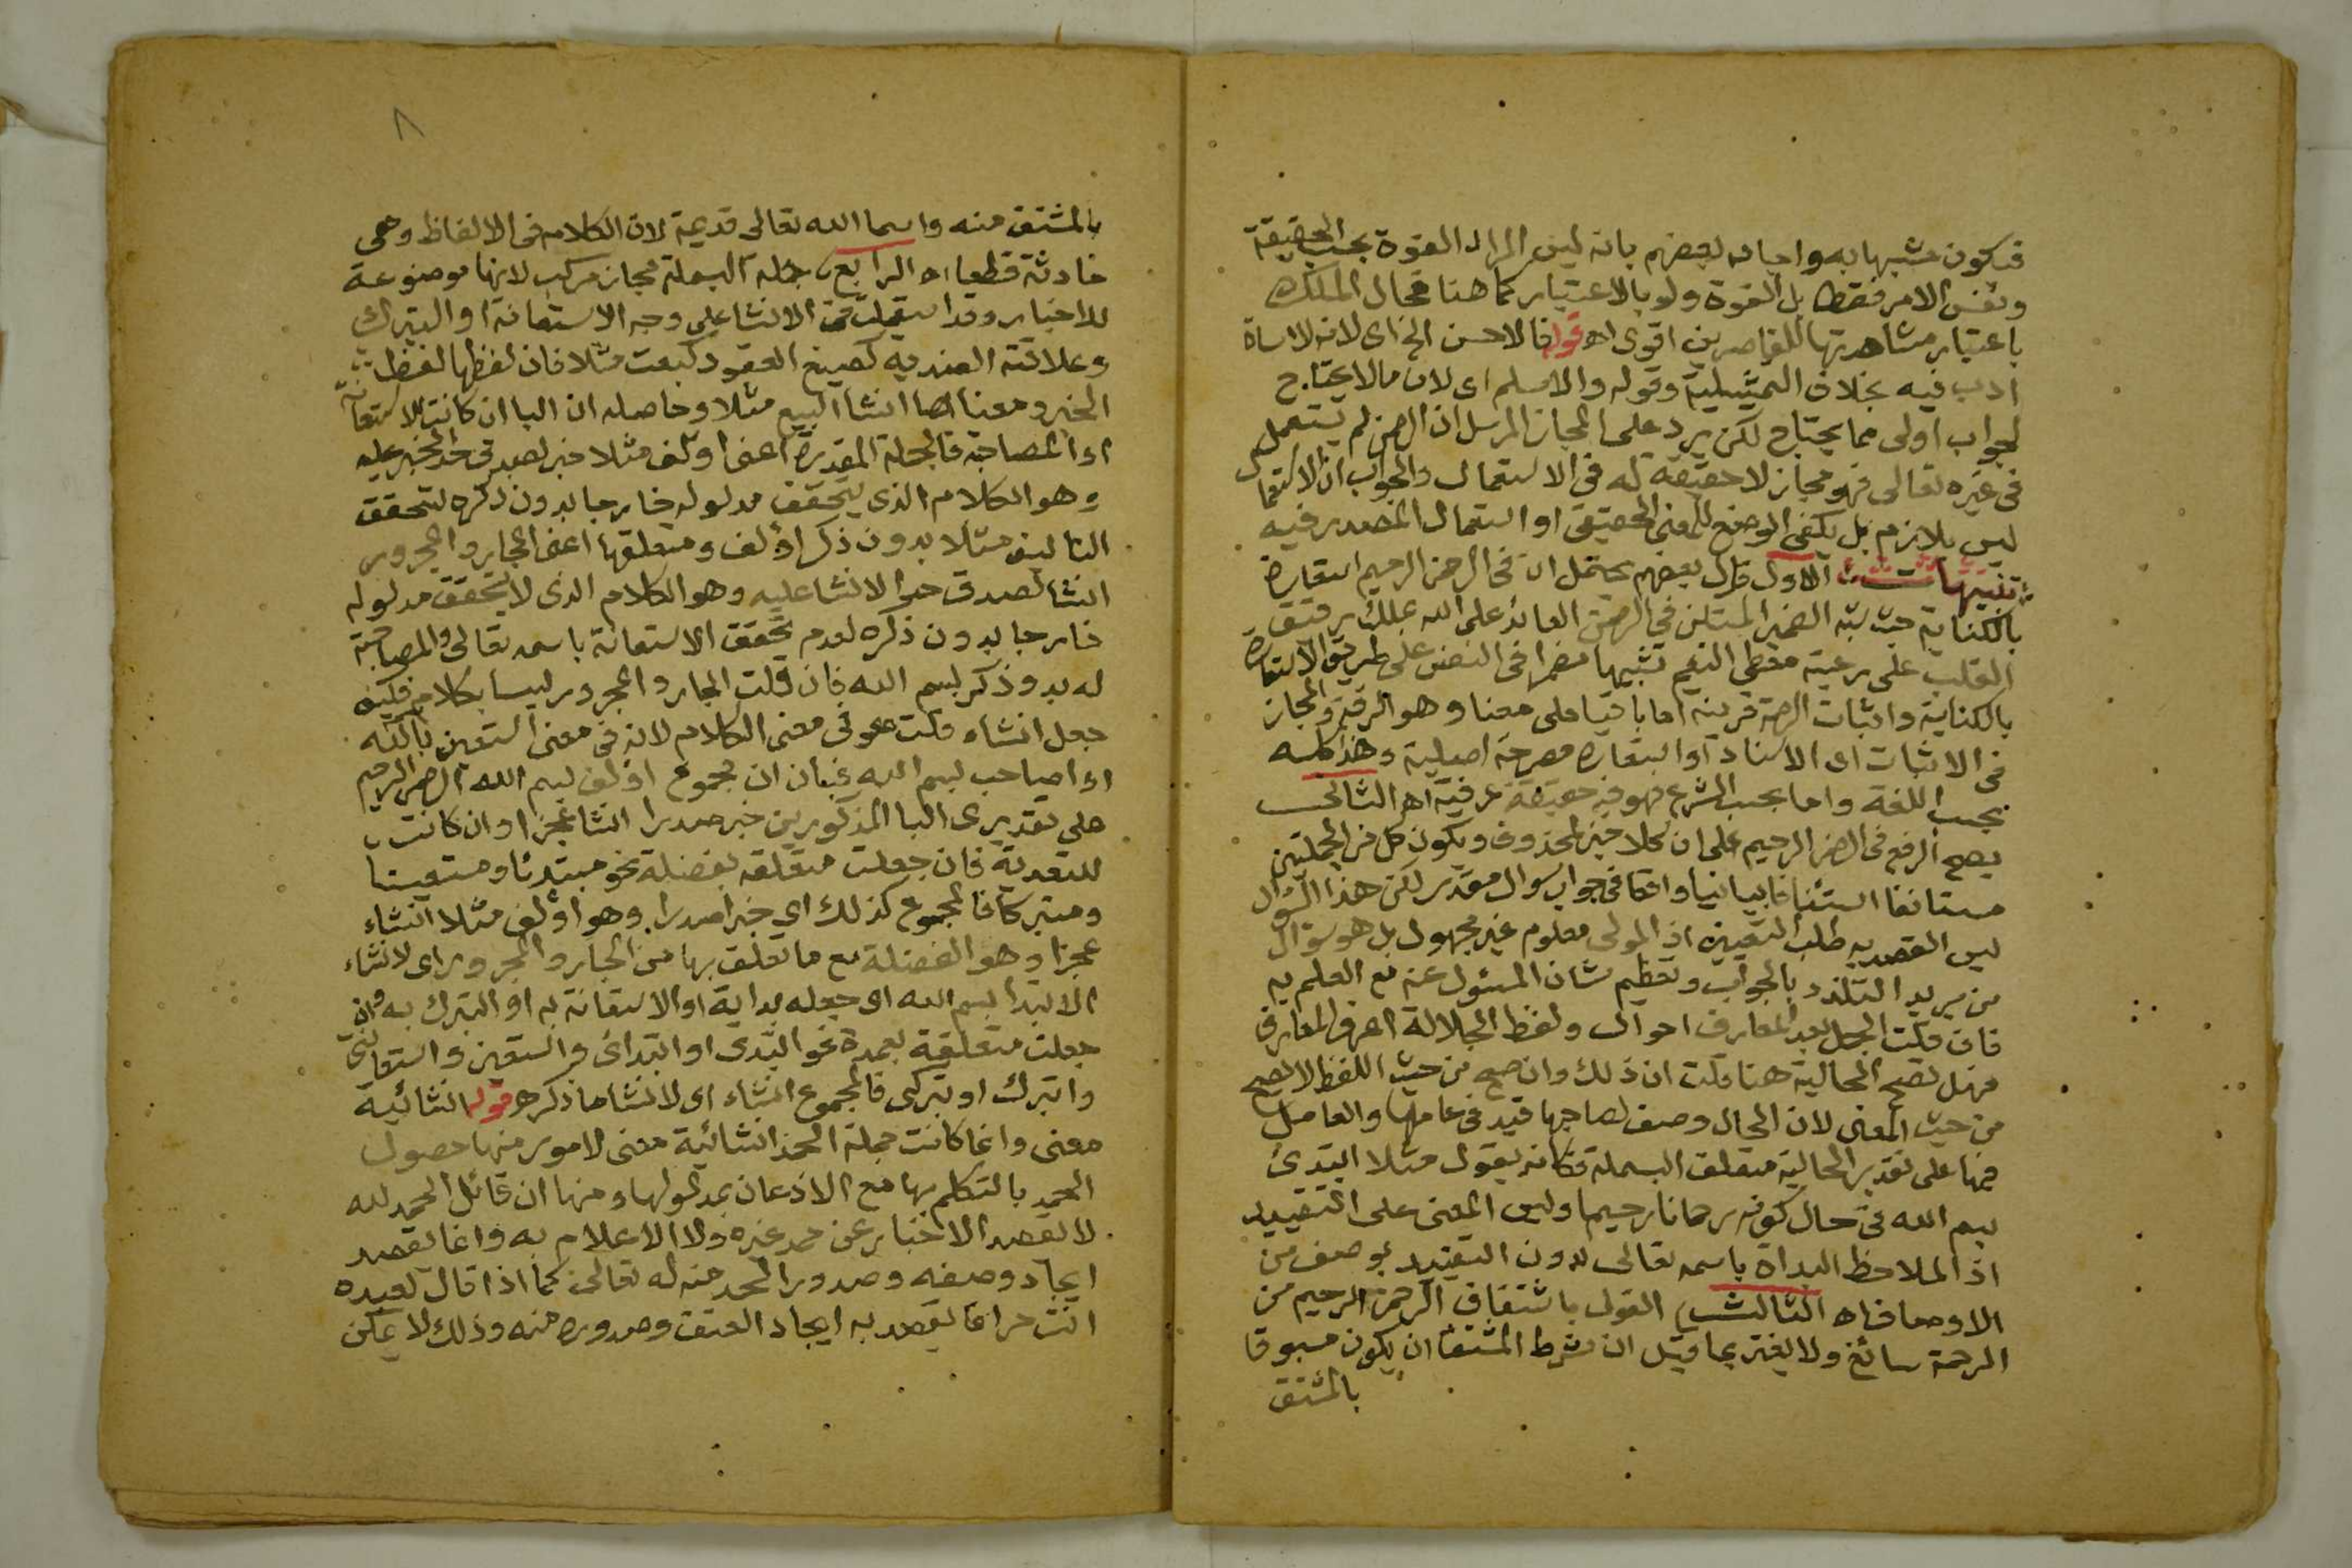 فيكون مشبها به واجاب بعضهم بانه ليس المراد القوة بحسب الحقيقة
ونفس الامر فقط بل القوة ولو بالاعتبار كما هنا فحال الملك
باعتبار مشاهدتها للقاصرين اقوى اه قوله فالاحسن الخ اى لانه لا اساة
ادب فيه بخلاف التمثيلية وقوله والاسلم اى لان ما لا يحتاج
لجواب اولى مما يحتاج لكن يرد على المجاز المرسل ان الرحمن لم يستعمل
فى غيره تعالى فهو مجاز لا حقيقة له فى الاستعمال والجواب ان الاستعمال
ليس بلازم بل يكفى الوضع للمعنى الحقيقى او استعمال المصدر فيه
تنبيهات الاول قال بعضهم يحتمل ان فى الرحمن الرحيم استعارة
بالكناية حيث شبه الضمير المستكن في الرحمن العائد على الله بملك رقيق
القلب على رعية معطى النعيم تشبيها مضمرا فى النفس على طريق الاستعارة
بالكناية واثبات الرحمة قرينه اما باقيا على معناه وهو الرقة والمجاز
فى الاثبات اى الاسناد او استعارة مصرحة اصلية وهذا كله
بحسب اللغة واما بحسب الشرع فهو فيه حقيقة عرفية اه الثانى
يصح الرفع فى الرحمن الرحيم على ان كلا خبر لمحذوف ويكون كل من الجملتين
مستانفا استئنافا بيانيا واقعا فى جواب سوال مقدر لكن هذا السوال
ليس القصد به طلب التعيين اذ المولى معلوم غير مجهول بل هو سؤال
من يريد التلذذ بالجواب وتعظيم شان المسئول عنه مع العلم به
فان قلت الجمل بعد المعارف احوال ولفظ الجلالة اعرف المعارف
فهل تصح الحالية هنا قلت ان ذلك وان صح من حيث اللفظ لا يصح
من حيث المعنى لان الحال وصف لصاحبها قيد فى عاملها والعامل
فيها على تقدير الحالية متعلق البسملة فكانه يقول مثلا ابتدئ
بسم الله فى حال كونه رحمانا رحيما وليس المعنى على التقييد
اذ الملاحظ البداة باسمه تعالى بدون التقييد بوصف من
الاوصاف اه الثالث القول باشتقاق الرحمن الرحيم من
الرحمة سائغ ولا يغتر بما قيل ان شرط المشتق ان يكون مسبوقا
بالمشتق
٨
بالمشتق منه واسما الله تعالى قديمة لان الكلام فى الالفاظ وهى
حادثة قطعا اه الرابع جملة البسملة مجاز مركب لانها موضوعة
للاخبار وقد استعملت فى الانشا على وجه الاستعانة او التبرك
وعلاقته الضديه كصيغ العقود كبعت مثلا فان لفظها لفظ
الخبر ومعناها انشا البيع مثلا وحاصله ان البا ان كانت للاستعانة
او المصاحبة فالجملة المقدرة اعنى اولف مثلا خبر لصدق حد الخبر عليه
وهو الكلام الذى يتحقق مدلوله خارجا بدون ذكره لتحقق
التاليف مثلا بدون ذكر اؤلف ومتعلقها اعنى الجار والمجرور
انشا لصدق حد الانشا عليه وهو الكلام الذى لا يتحقق مدلوله
خارجا بدون ذكره لعدم تحقق الاستعانة باسمه تعالى والمصاحبة
له بدون ذكر بسم الله فان قلت الجار والمجرور ليسا بكلام فكيف
جعل انشاء قلت هو فى معنى الكلام لانه فى معنى استعين بالله
او اصاحب بسم الله فبان ان مجموع اؤلف بسم الله الرحمن الرحيم
على تقديرى البا المذكورين خبر صدرا انشا عجزا وان كانت
للتعدية فان جعلت متعلقه بفضلة نحو مبتدئا ومستعينا
ومتبركا فالمجموع كذلك اى خبر صدرا وهو اؤلف مثلا انشاء
عجزا وهو الفضلة مع ما تعلق بها من الجار والمجرور اى لانشاء
الابتدا بسم الله اى جعله بداية او الاستعانة به او التبرك به وان
جعلت متعلقة بعمدة نحو ابتدى او ابتدائى واستعين واستعانتى
واتبرك او تبركى فالمجموع انشاء اى لانشا ما ذكر اه قوله انشائية
معنى وانما كانت جملة الحمد انشائية معنى لامور منها حصول
الحمد بالتكلم بها مع الاذعان بمدلولها ومنها ان قائل الحمد لله
لا يقصد الاخبار عن حمد غيره ولا الاعلام به وانما يقصد
ايجاد وصفه وصدور الحمد منه له تعالى كما اذا قال لعبده
انت حر انما يقصد به ايجاد العتق وصدوره منه وذلك لا يمكن